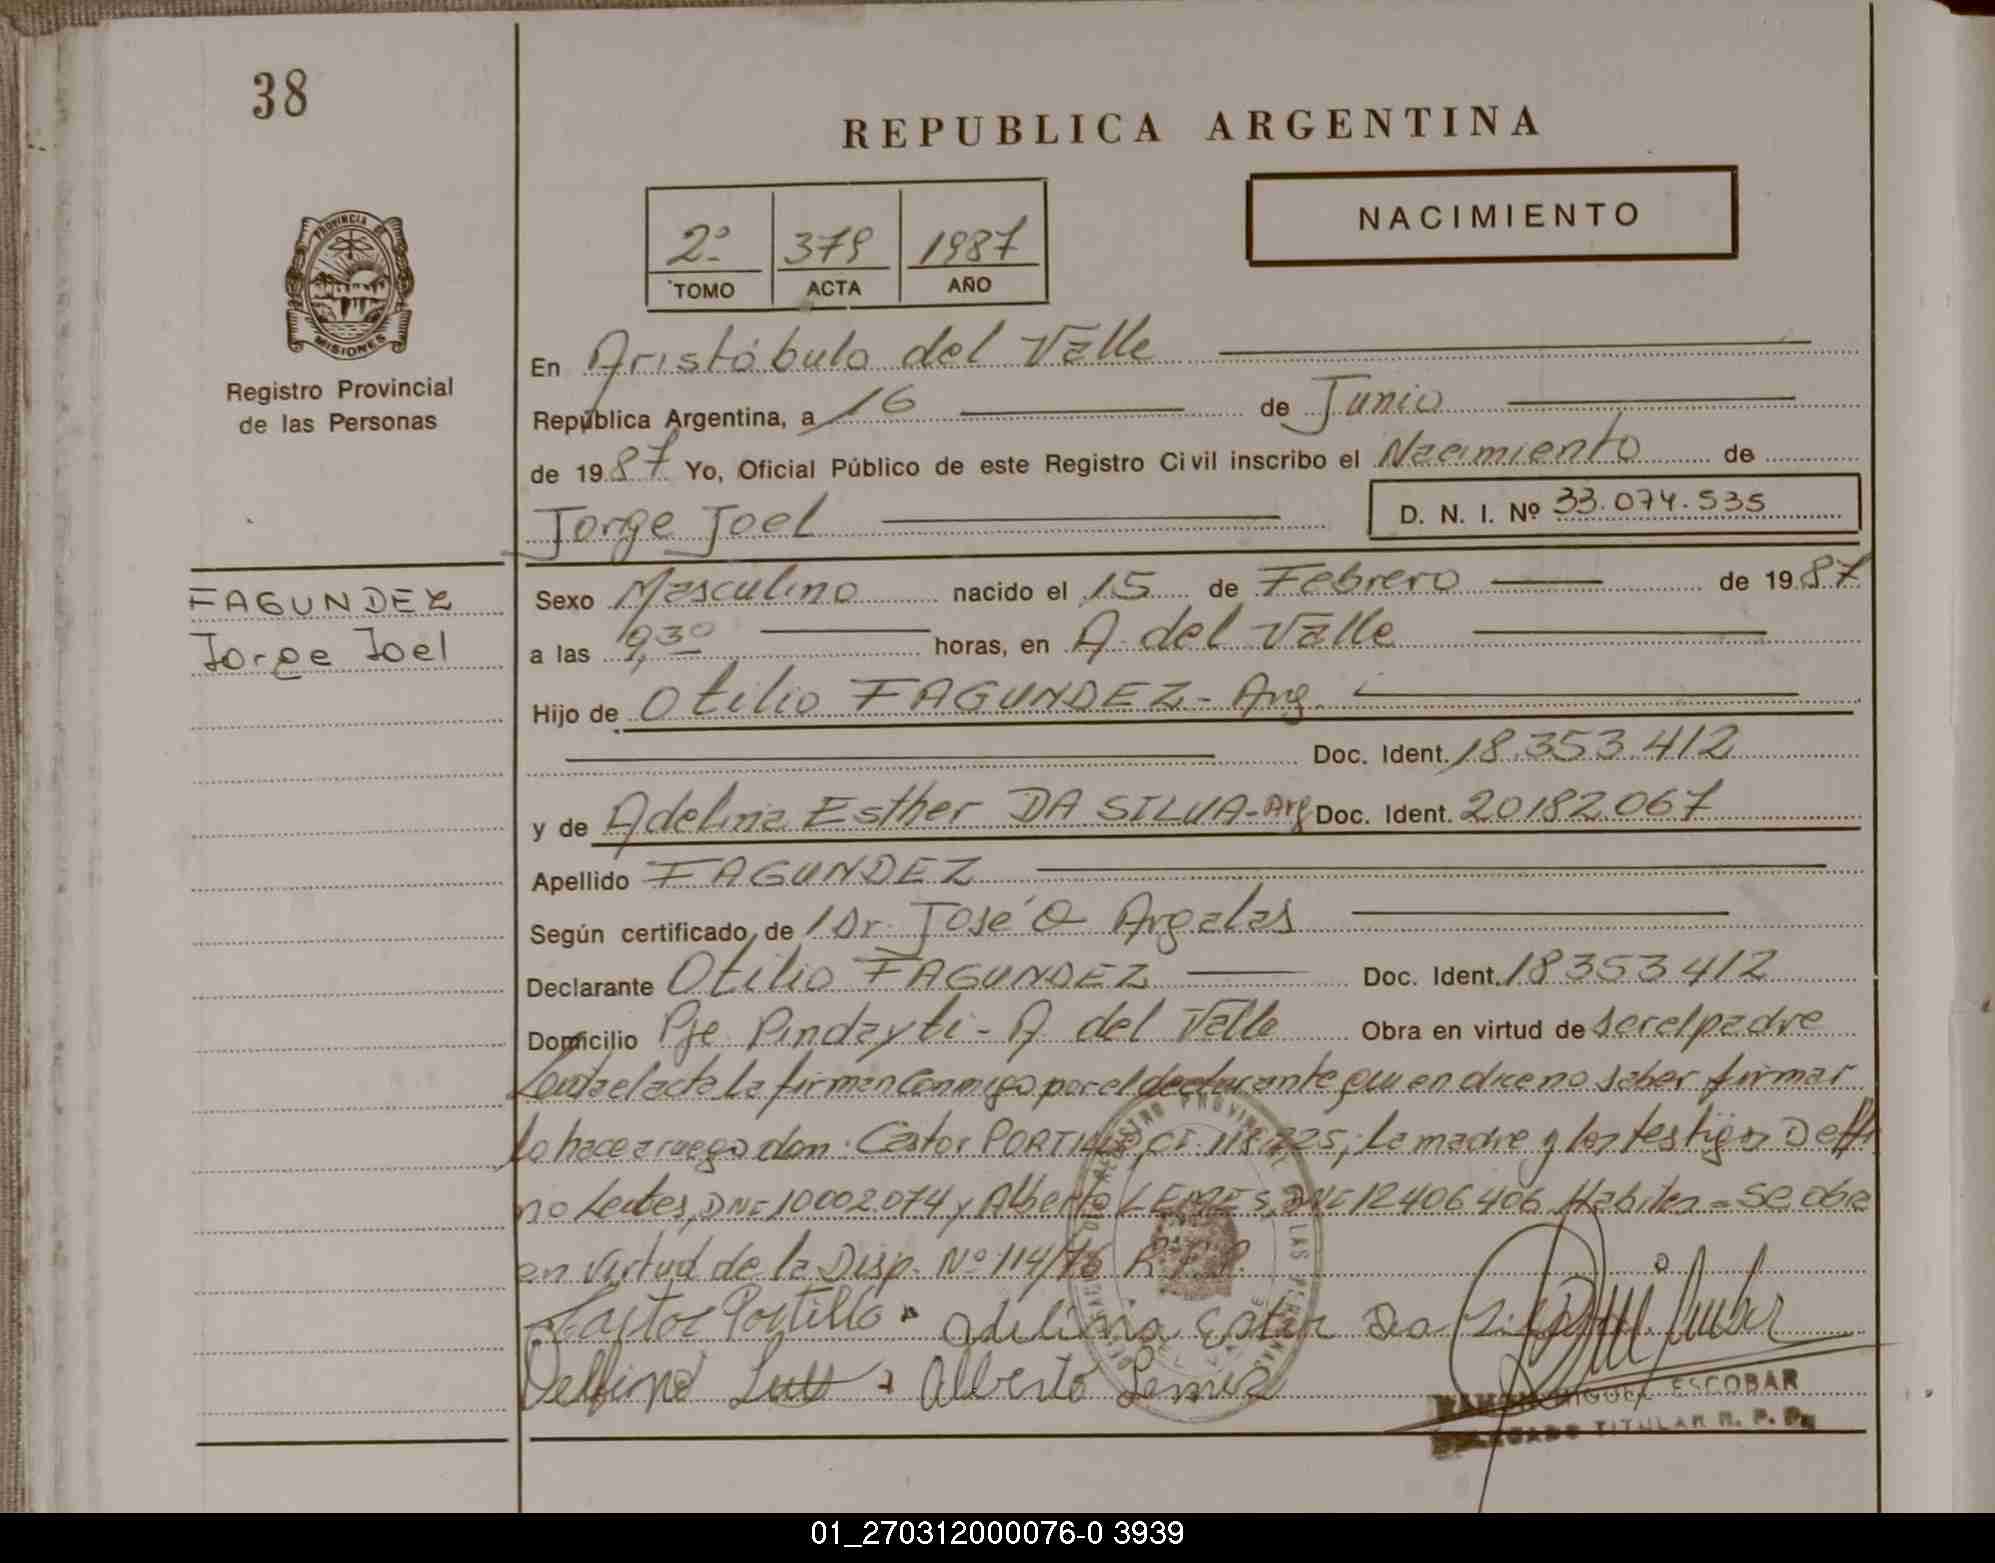 38
REPUBLICA ARGENTINA
NACIMIENTO
2º 379 1987
TOMO ACTA AÑO
PROVINCIA DE
MISIONES
Registro Provincial
de las Personas
En Aristóbulo del Valle
República Argentina, a 16 de Junio
de 1987 Yo, Oficial Público de este Registro Civil inscribo el Nacimiento de
Jorge Joel D. N. I. Nº 33.074.535
FAGUNDEZ
Jorge Joel
Sexo Masculino nacido el 15 de Febrero de 1987
a las 9,30 horas, en A. del Valle
Hijo de Otilio FAGUNDEZ - Arg.
Doc. Ident. 18.353.412
y de Adelina Esther DA SILVA - Arg Doc. Ident. 20182.067
Apellido FAGUNDEZ
Según certificado de Dr. José O Argalas
Declarante Otilio FAGUNDEZ Doc. Ident. 18353412
Domicilio Pje Pindayti - A del Valle Obra en virtud de ser el padre
el acta la firman conmigo por el declarante quien dice no saber firmar
lo hace a ruego don: Castor PORTILLO, CI. 118.225; la madre y los testigos Delfi
no Leites, DNI 10002.074 y Alberto LEMES, DNI 12406406 Habiles = Se obra
en virtud de la Disp. Nº 114/76 R.P.P.
Castor Portillo adelina Ester Da Silva
Delfino Alberto Lemes
RAMON MIGUEL ESCOBAR
DELEGADO TITULAR R. P. P.
01_270312000076-0 3939